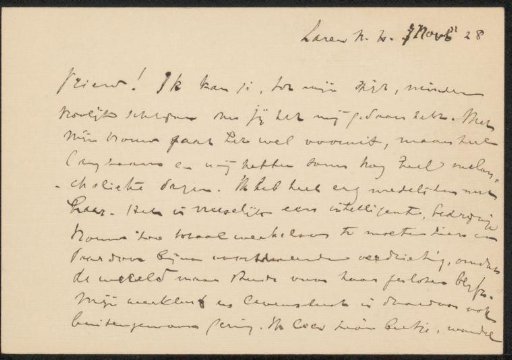 Laren N. H. 7 Nov 28
Vriend! Ik kan je, tot mijn spijt, minder
vroolijk schrijven dan jij het mij gedaan hebt. Met
mijn vrouw gaat het wel vooruit, maar heel
langzaam en wij hebben soms nog heel melan-
cholieke dagen. Ik heb heel erg medelijden met
haar. Het is vreeselijk een intelligente, bedrijvige
vrouw zoo totaal werkeloos te moeten zien en
daardoor bijna voortdurend verdrietig, omdat
de wereld voor haar gesloten blijft.
Mijn werklust en levenslust is daardoor ook
buitengewoon gering. Ik lees een beetje, wandel